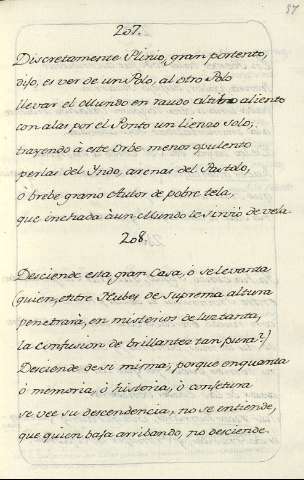 57
207.
Discretamente Plinio, gran portento,
dijo, es ver de un Polo, al otro Polo
llevar el Mundo en raudo altibo aliento
con alas por el Ponto un lienzo solo;
trayendo à este Orbe menos opulento
perlas del Yndo, arenas del Pactolo,
ò brebe grano Autor de pobre tela,
que inchada à un Mundo le sirviò de vela.
208.
Desciende esta gran Casa, ò se levanta
(quien, entre Nubes de suprema altura
penetrarà, en misterios de luz tanta,
la confusion de brillantez tan pura?)
Desciende de si misma; porque en quanta
ò memoria, ò historia, ò confetura
se vee su descendencia, no se entiende,
que quien baja arribando, no desciende.